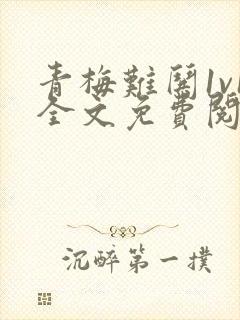 青梅難闖1v1
全文免費閱
沉醉第一撲